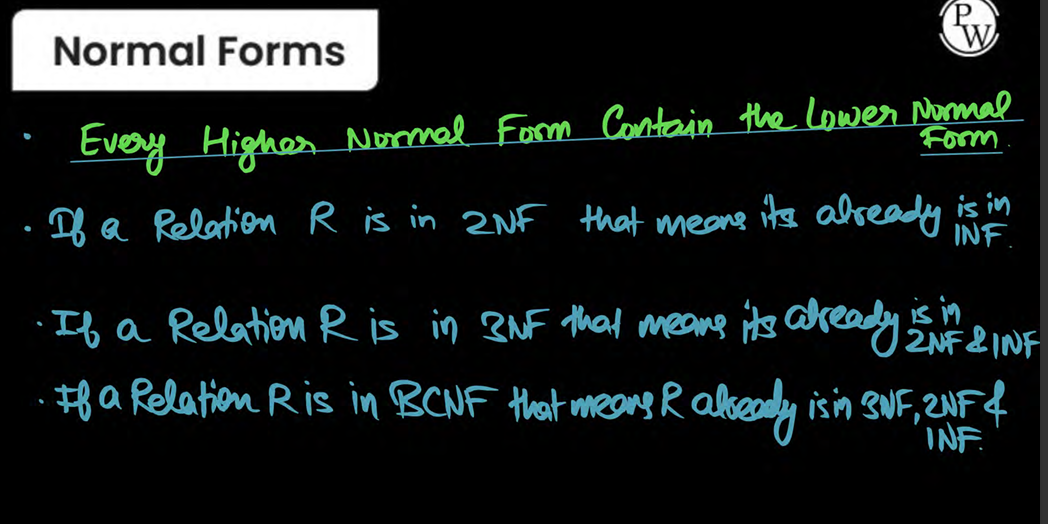 Normal Forms
PW
• Every Higher Normal Form Contain the Lower Normal
Form.
• If a Relation R is in 2NF that means its already is in
1NF.
• If a Relation R is in 3NF that means its already is in
2NF & 1NF
• If a Relation R is in BCNF that means R already is in 3NF, 2NF &
1NF.